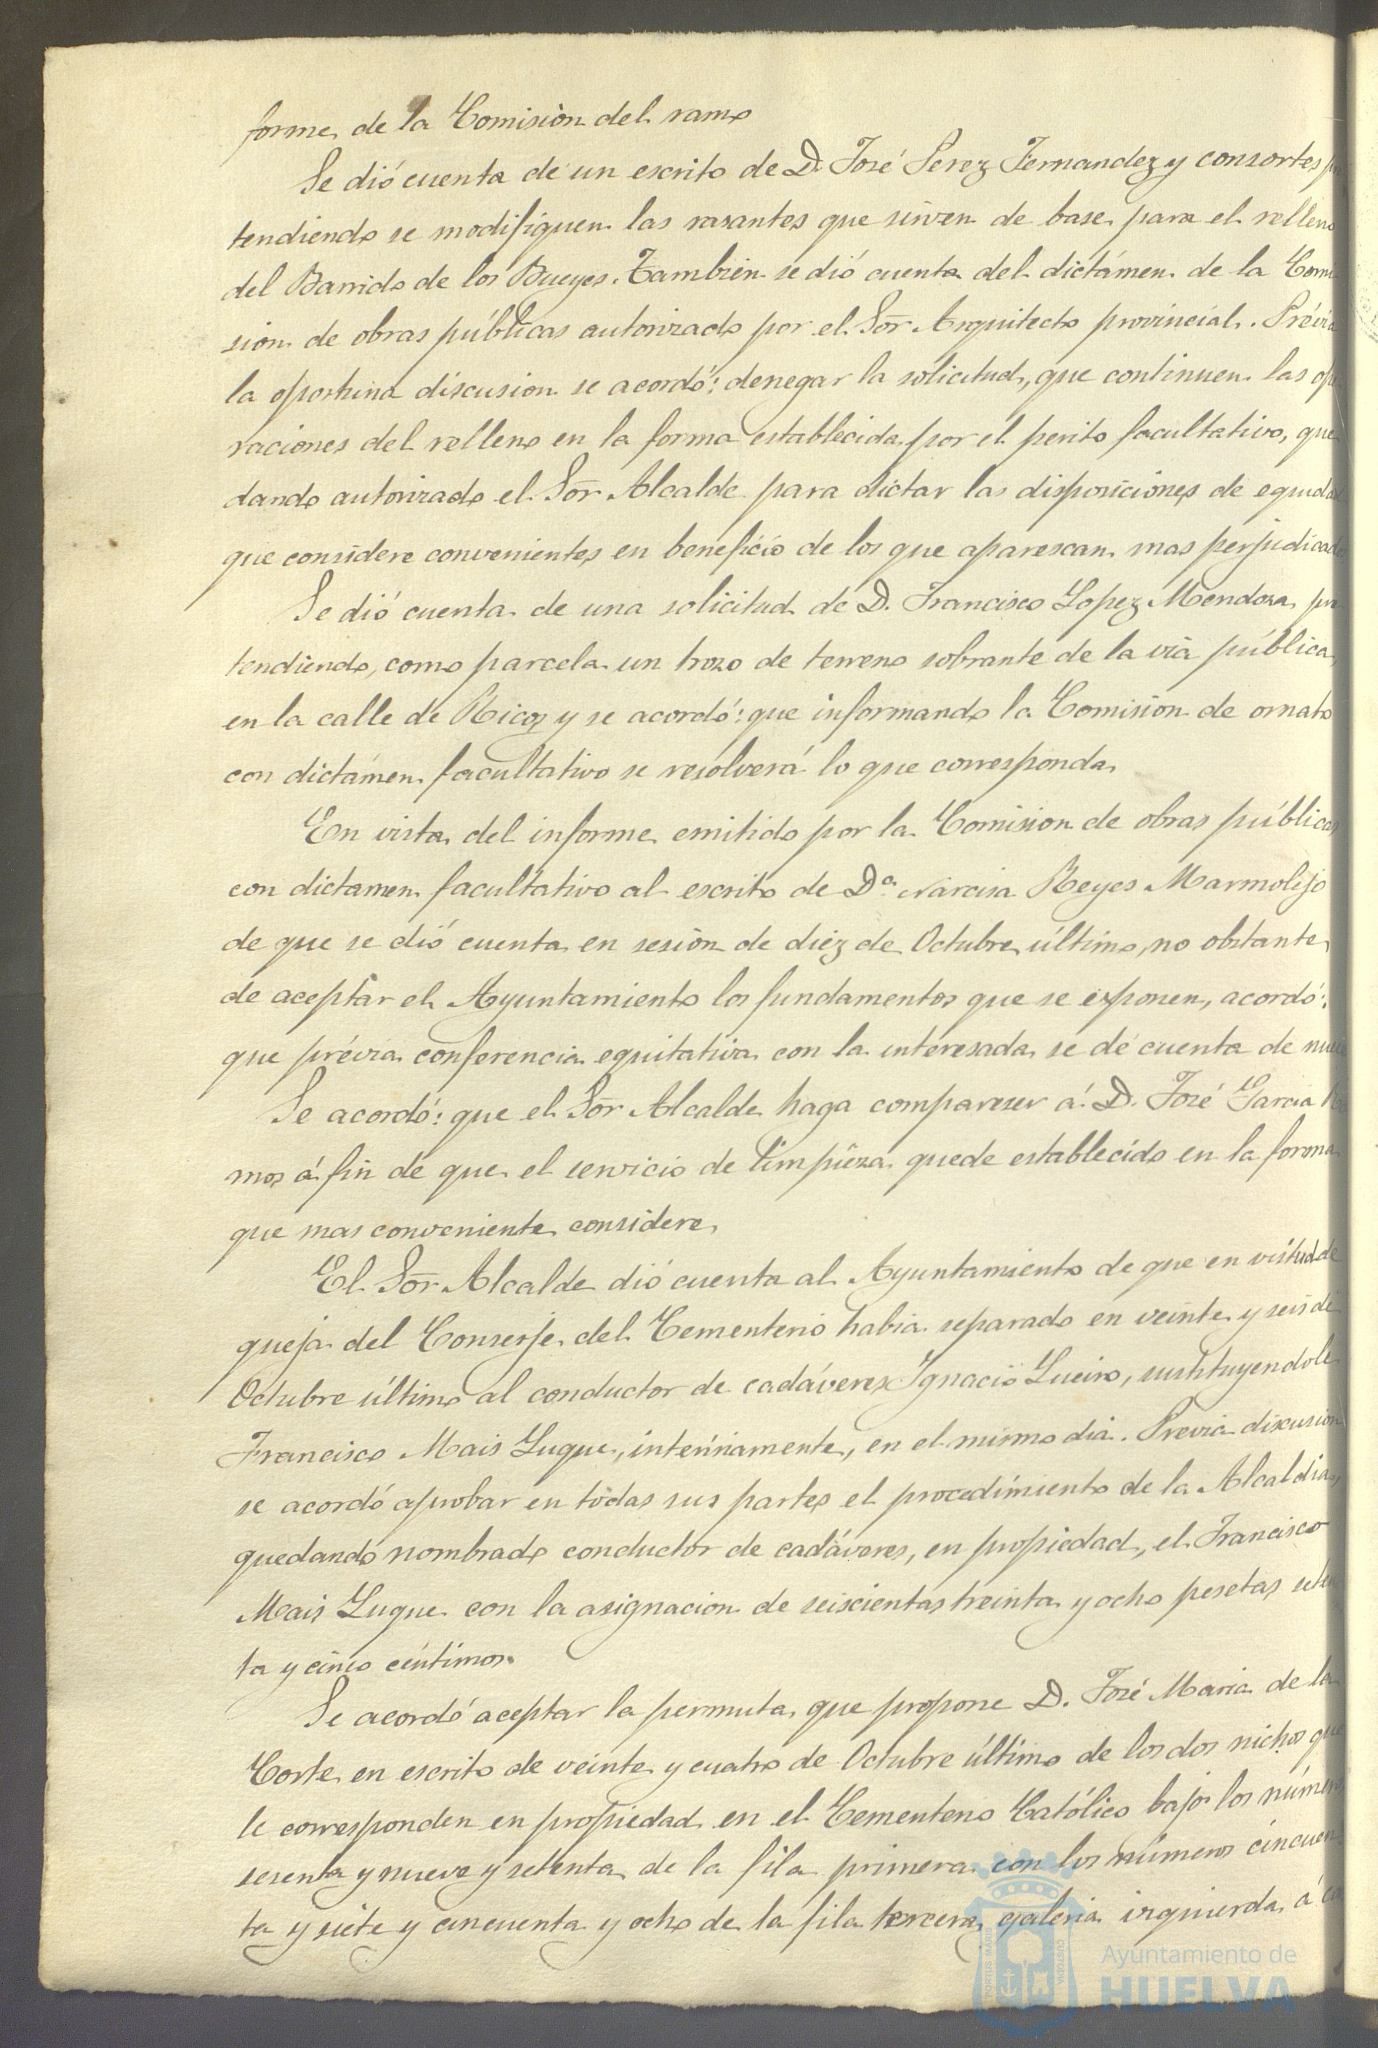 forme de la Comisiòn del ramo
Se dió cuenta de un escrito de D. José Perez Fernandez y consortes pre
tendiendo se modifiquen las rasantes que sirven de base para el relleno
del Barrido de los Bueyes. Tambien se dió cuenta del dictámen de la Comi
sion de obras públicas autorizado por el Sōr Arquitecto provincial. Prévia
la oportuna discusion se acordó: denegar la solicitud, que continuen las ope
raciones del relleno en la forma establecida por el perito facultativo, que
dando autorizado el Sōr Alcalde para dictar las disposiciones de equidad
que considere convenientes en beneficio de los que aparescan mas perjudicados
Se dió cuenta de una solicitud de D. Francisco Lopez Mendoza pre
tendiendo, como parcela un trozo de terreno sobrante de la via pública,
en la calle de Ricos y se acordó: que informando la Comision de ornato
con dictámen facultativo se resolverá lo que corresponda
En vista del informe emitido por la Comision de obras públicas
con dictamen facultativo al escrito de Dª. Narcisa Reyes Marmolejo
de que se dió cuenta en sesion de diez de Octubre último, no obstante
de aceptar el Ayuntamiento los fundamentos que se exponen, acordó:
que prévia conferencia equitativa con la interesada se dé cuenta de nuevo
Se acordó: que el Sōr Alcalde haga compareser á D. José Garcia Ra
mos á fin de que el servicio de limpieza quede establecido en la forma
que mas conveniente considere
El Sōr Alcalde dió cuenta al Ayuntamiento de que en virtud de
queja del Conserje del Cementerio habia separado en veinte y seis de
Octubre último al conductor de cadáveres Ignacio Lueiro, sustituyendole
Francisco Mais Luque, interinamente, en el mismo dia. Previa discusion
se acordó aprobar en todas sus partes el procedimiento de la Alcaldia,
quedando nombrado conductor de cadáveres, en propiedad, el Francisco
Mais Luque con la asignacion de seiscientas treinta y ocho pesetas seten
ta y cinco céntimos.
Se acordó aceptar la permuta que propone D. José Maria de la
Corte en escrito de veinte y cuatro de Octubre último de los dos nichos que
le corresponden en propiedad en el Cementerio Católico bajo los números
sesenta y nueve y setenta de la fila primera con los números cincuen
ta y siete y cincuenta y ocho de la fila tercera galeria izquierda á
Ayuntamiento de
HUELVA